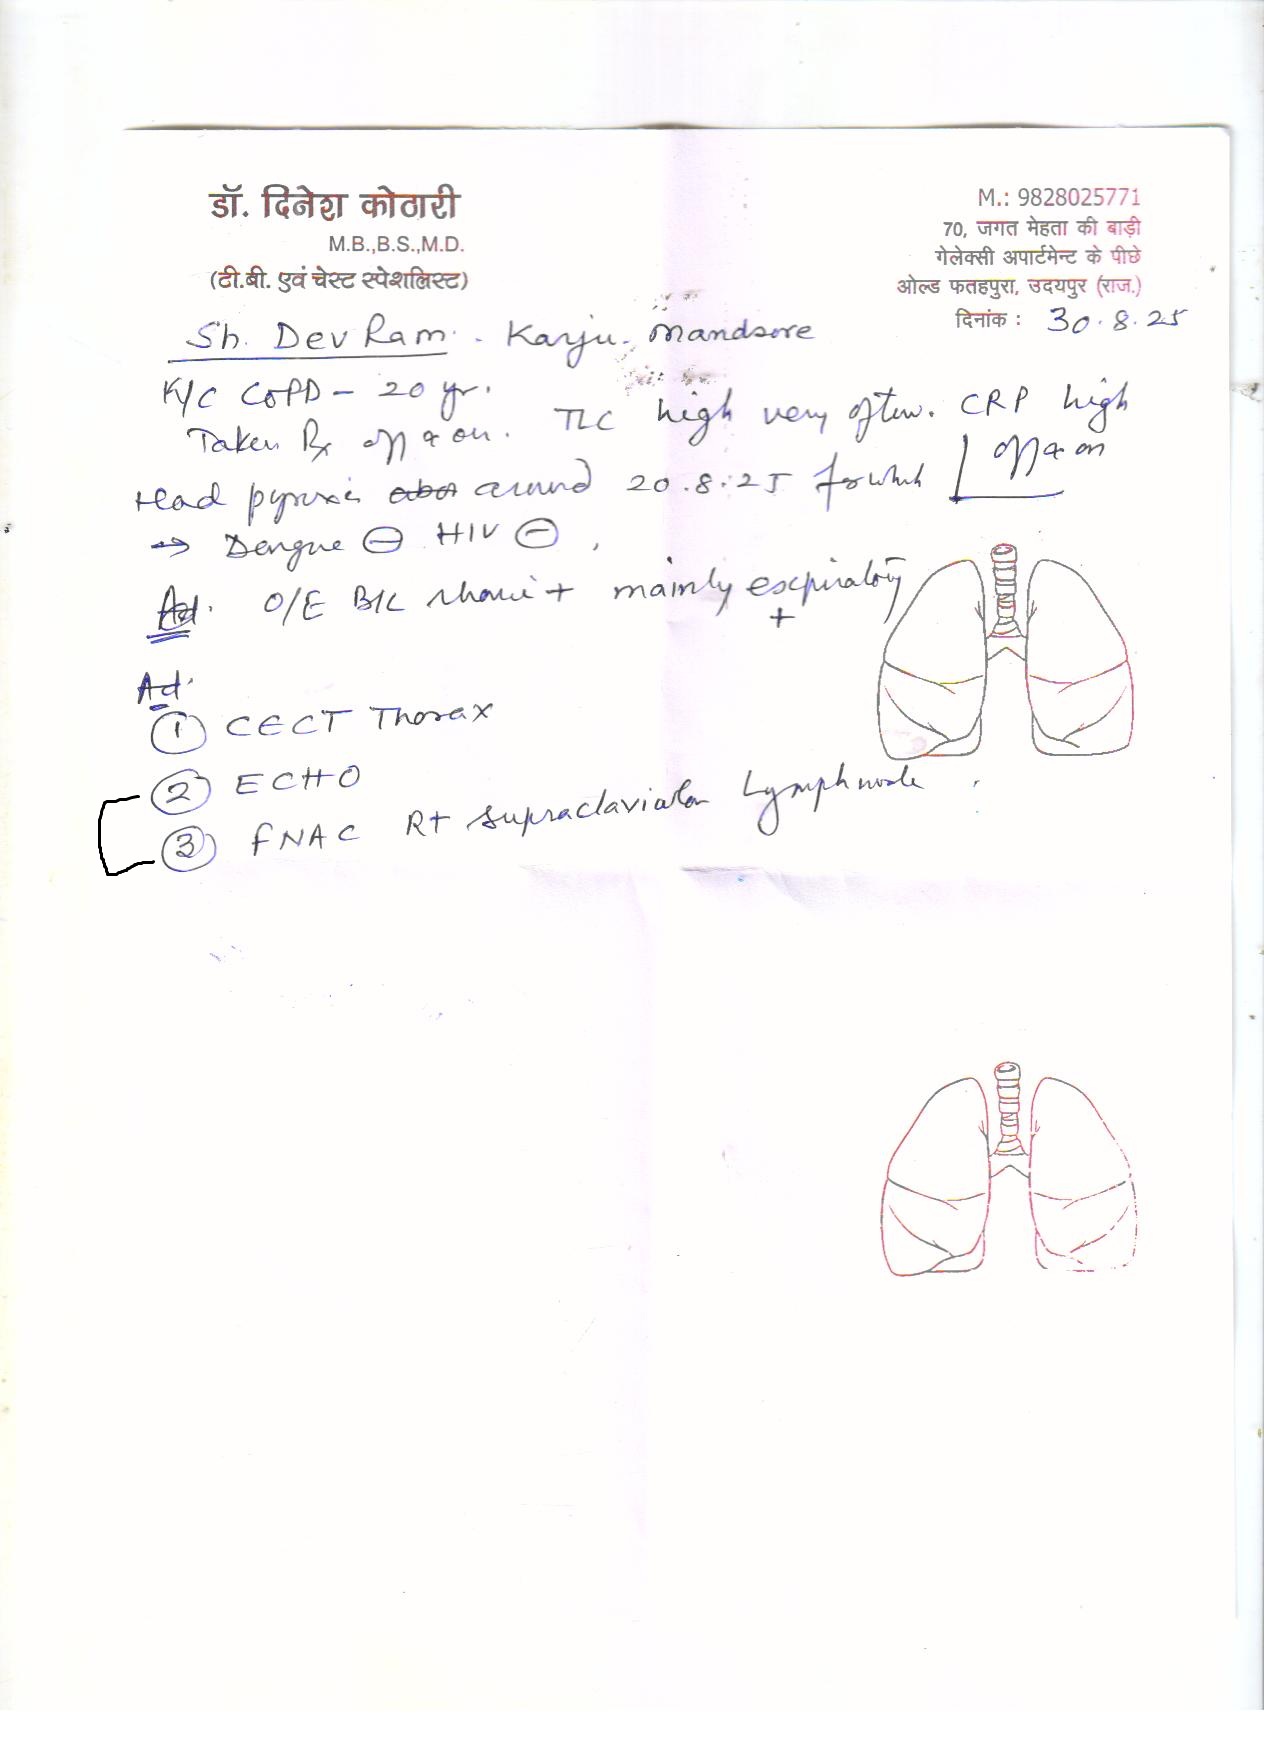 डॉ. दिनेश कोठारी
M.B.,B.S.,M.D.
(टी.बी. एवं चेस्ट स्पेशलिस्ट)
M.: 9828025771
70, जगत मेहता की बाड़ी
गेलेक्सी अपार्टमेन्ट के पीछे
ओल्ड फतहपुरा, उदयपुर (राज.)
दिनांक : 30.8.25
Sh. Dev Ram. Karju. Mandsore
K/C COPD - 20 yr.
Taken Rx off & on. TLC high very often. CRP high
off & on
Had pyrexia around 20.8.25 for which
→ Dengue ⊖ HIV ⊖,
Ad. O/E B/L rhonchi + mainly expiratory
+
Ad.
① CECT Thorax
② ECHO
③ FNAC Rt supraclavicular Lymphnode